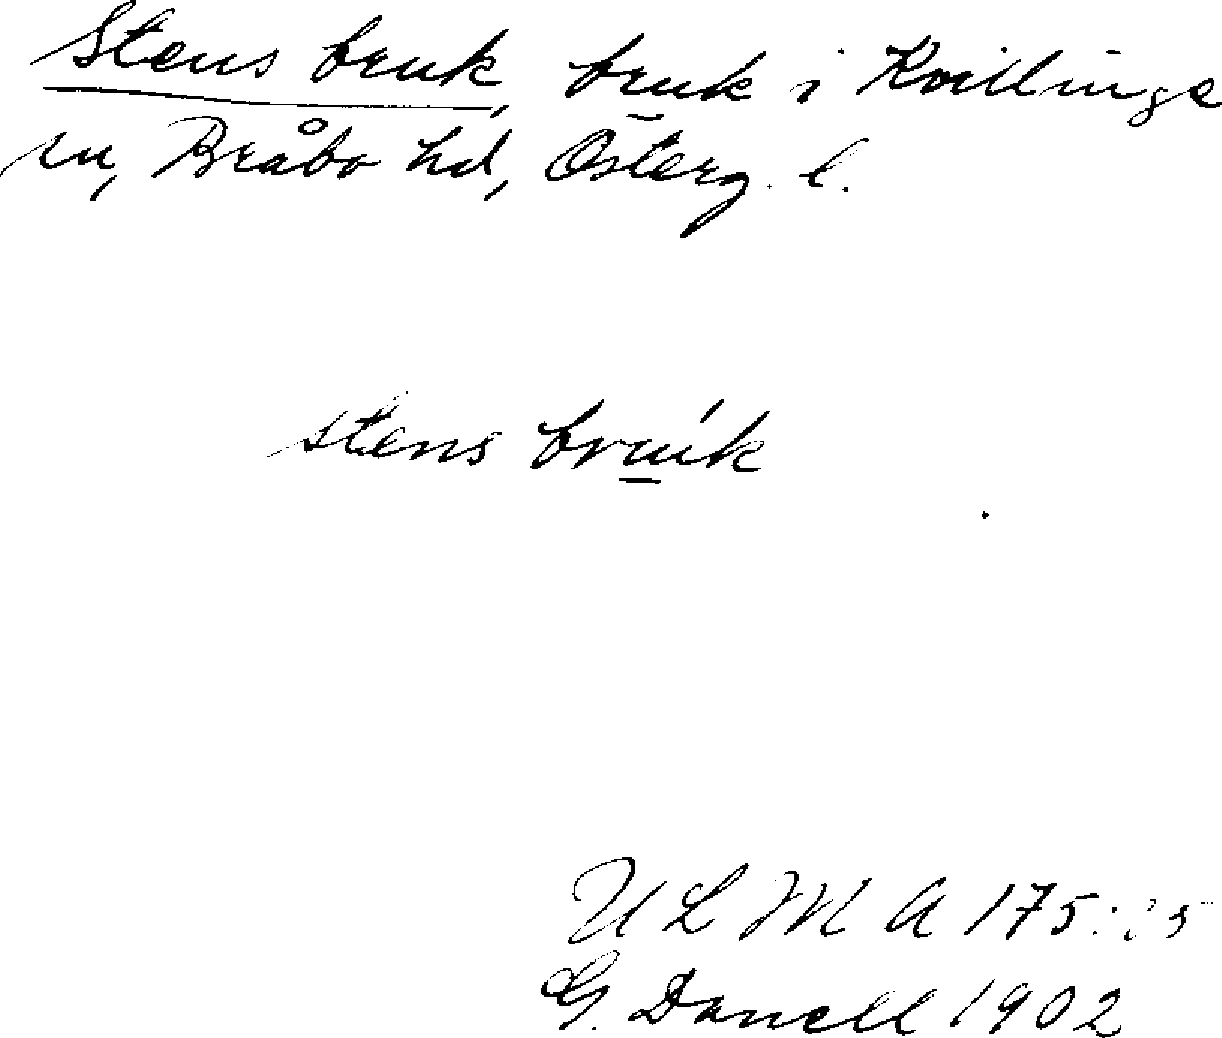 Stens bruk, bruk i Kvillinge
sn, Bråbo hd, Österg. l.
stens bruk
U L M A 175:
G. Danell 1902